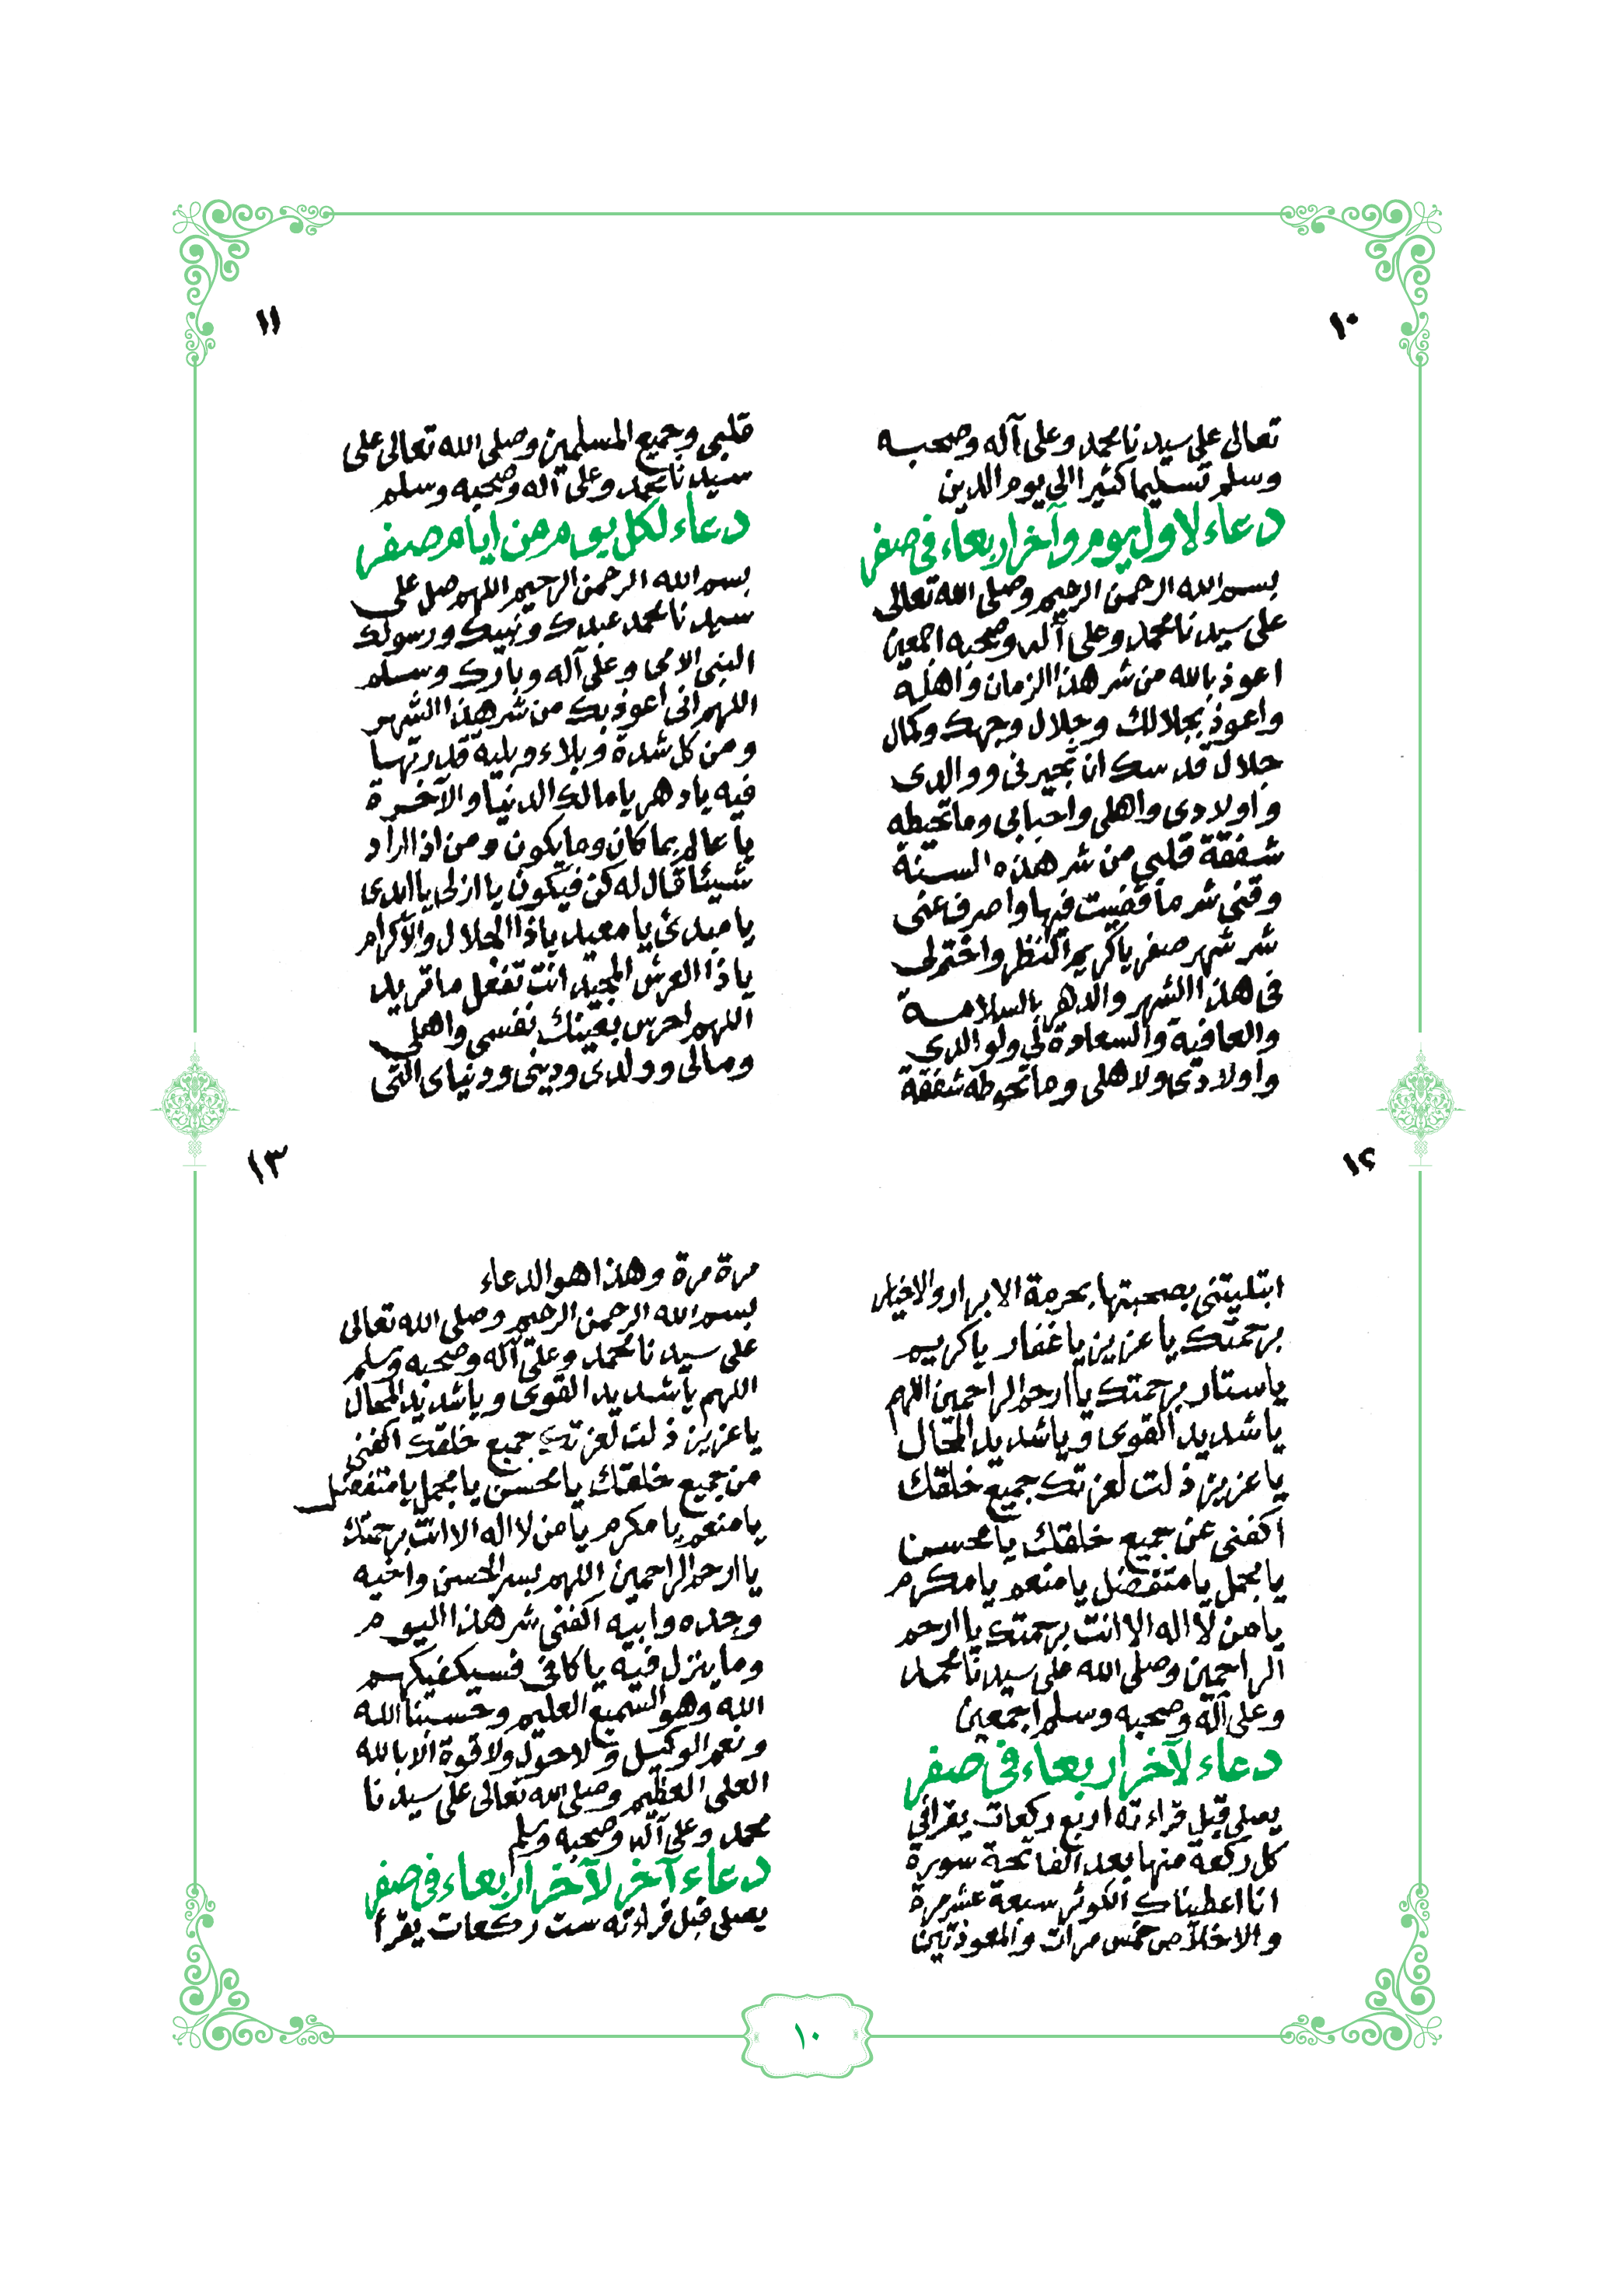 ١٠
تعالى على سيدنا محمد وعلى آله وصحبه
وسلم تسليما كثيرا الى يوم الدين
دعاء لاول يوم وآخر اربعاء فى صفر
بسم الله الرحمن الرحيم وصلى الله تعالى
على سيدنا محمد وعلى آله وصحبه اجمعين
اعوذ بالله من شر هذا الزمان واهله
واعوذ بجلالك وجلال وجهك وكمال
جلال قدسك ان تجيرنى ووالدى
واولادى واهلى واحبابى وما تحيطه
شفقة قلبى من شر هذه السنة
وقنى شر ما قضيت فيها واصرف عنى
شر شهر صفر ياكريم النظر واختم لى
فى هذا الشهر والدهر بالسلامة
والعافية والسعادة لى ولوالدى
واولادى ولاهلى وما تحوطه شفقة
١١
قلبى وجميع المسلمين وصلى الله تعالى على
سيدنا محمد وعلى آله وصحبه وسلم
دعاء لكل يوم من ايام صفر
بسم الله الرحمن الرحيم اللهم صل على
سيدنا محمد عبدك ونبيك ورسولك
النبى الامى وعلى آله وبارك وسلم
اللهم انى اعوذ بك من شر هذا الشهر
ومن كل شدة وبلاء وبلية قدرتها
فيه يادهر يامالك الدنيا والآخرة
يا عالم بما كان وما يكون ومن اذا اراد
شيئا قال له كن فيكون يا ازلى يا ابدى
يا مبدئ يا معيد ياذا الجلال والاكرام
ياذا العرش المجيد انت تفعل ما تريد
اللهم احرس بعينك نفسى واهلى
ومالى وولدى ودينى ودنياى التى
١٢
ابتليتنى بصحبتها بحرمة الابرار والاخيار
برحمتك يا عزيز يا غفار ياكريم
ياستار برحمتك يا ارحم الراحمين اللهم
ياشديد القوى وياشديد المحال
يا عزيز ذلت لعزتك جميع خلقك
اكفنى عن جميع خلقك يا محسن
يا مجمل يا متفضل يا منعم يا مكرم
يا من لا اله الا انت برحمتك يا ارحم
الراحمين وصلى الله على سيدنا محمد
وعلى آله وصحبه وسلم اجمعين
دعاء لآخر اربعاء فى صفر
يصلى قبل قراءته اربع ركعات يقرأ فى
كل ركعة منها بعد الفاتحة سورة
انا اعطيناك الكوثر سبعة عشر مرة
والاخلاص خمس مرات والمعوذتين
١٣
مرة مرة وهذا هو الدعاء
بسم الله الرحمن الرحيم وصلى الله تعالى
على سيدنا محمد وعلى آله وصحبه وسلم
اللهم ياشديد القوى وياشديد المحال
يا عزيز ذلت لعزتك جميع خلقك اكفنى
من جميع خلقك يا محسن يا مجمل يا متفضل
يا منعم يا مكرم يا من لا اله الا انت برحمتك
يا ارحم الراحمين اللهم بسر الحسن واخيه
وجده وابيه اكفنى شر هذا اليوم
وما ينزل فيه ياكافى فسيكفيكهم
الله وهو السميع العليم وحسبنا الله
ونعم الوكيل ولا حول ولا قوة الا بالله
العلى العظيم وصلى الله تعالى على سيدنا
محمد وعلى آله وصحبه وسلم
دعاء آخر لآخر اربعاء فى صفر
يصلى قبل قراءته ست ركعات يقرأ
١٠